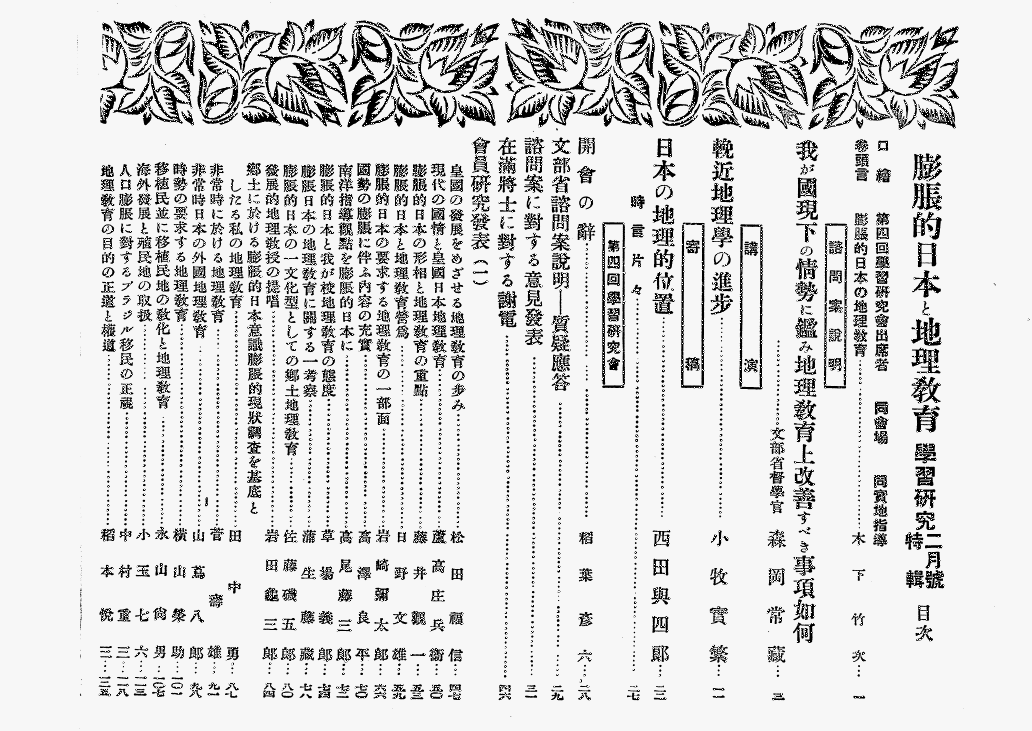 膨脹的日本と地理敎育 學習硏究二月號特輯 目次
口繪 第四回學習硏究會出席者 同會場 同實地指導
卷頭言 膨脹的日本の地理敎育 木下竹次 一
諮問案說明
我が國現下の情勢に鑑み地理敎育上改善すべき事項如何
文部省督學官 森岡常藏 三
講演
輓近地理學の進步 小牧實繁 一一
寄稿
日本の地理的位置 西田與四郞 一三
時言片々 二七
第四回學習硏究會
開會の辭 稻葉彥六 二八
文部省諮問案說明―質疑應答 二九
諮問案に對する意見發表 三一
在滿將士に對する謝電 四六
會員硏究發表(一)
皇國の發展をめざせる地理敎育の步み 松田福信 四七
現代の國情と皇國日本地理敎育 蘆高庄兵衞 五〇
膨脹的日本の形相と地理敎育の重點 藤井觀一 五三
膨脹的日本と地理敎育營爲 日野文雄 五九
膨脹的日本の要求する地理敎育の一部面 岩崎彌太郞 六六
國勢の膨脹に伴ふ內容の充實 高澤良平
南洋指導觀點を膨脹的日本に 高尾藤三郞 七二
膨脹的日本と我が校地理敎育の態度 草場義郞 七四
膨脹日本の地理敎育に關する一考察 蒲生藤藏 七六
膨脹的日本の一文化型としての鄕土地理敎育 佐藤磯五郞 八〇
發展的地理敎授の提唱 岩田龜三郞 八四
鄕土に於ける膨脹的日本意識膨脹的現狀調查を基底と
したる私の地理敎育 田中勇 八七
非常時に於ける地理敎育 菅壽雄 九一
非常時日本の外國地理敎育 山蔦八郞 九八
時勢の要求する地理敎育 橫山榮助 一〇一
移植民並に移植民地の敎化と地理敎育 永山尙男 一〇七
海外發展と殖民地の取扱 小玉七六 一一三
人口膨脹に對するブラジル移民の正視 中村重三 一一八
地理敎育の目的の正道と權道 稻本悅三 一二五